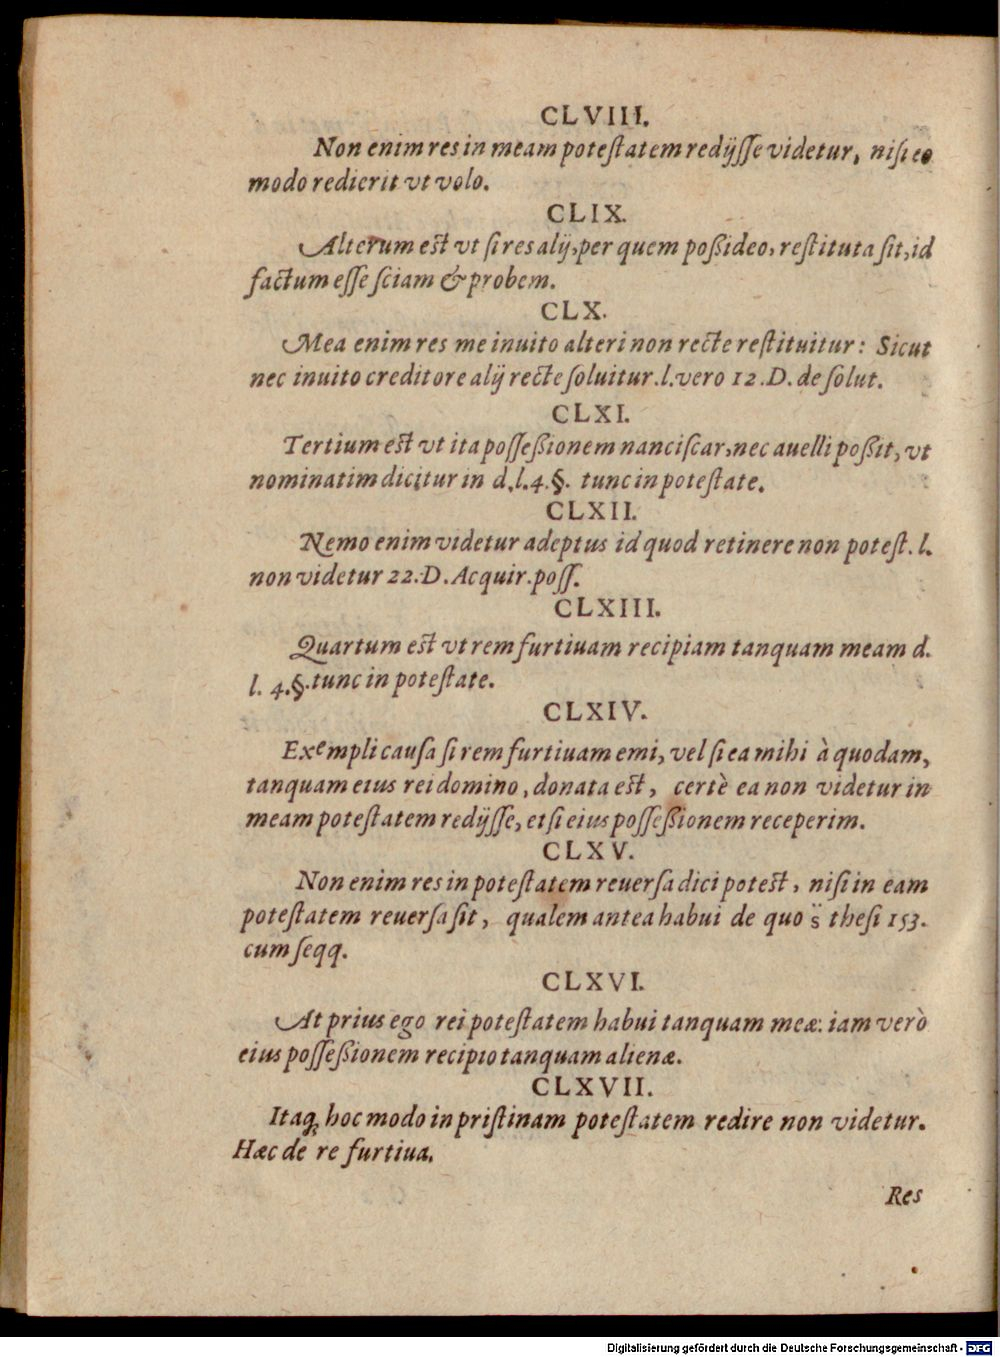 CLVIII.
Non enim res in meam poteſtatem redijſſe videtur, niſi eo
modo redierit vt volo.
CLIX.
Alterum eſt vt ſi res alij, per quem poßideo, reſtituta ſit, id
factum eſſe ſciam & probem.
CLX.
Mea enim res me inuito alteri non recte reſtituitur: Sicut
nec inuito creditore alij recte ſoluitur. l. vero 12. D. de ſolut.
CLXI.
Tertium eſt vt ita poſſeßionem nanciſcar, nec auelli poßit, vt
nominatim dicitur in d. l. 4. §. tunc in poteſtate.
CLXII.
Nemo enim videtur adeptus id quod retinere non poteſt. l.
non videtur 22. D. Acquir. poſſ.
CLXIII.
Quartum eſt vt rem furtiuam recipiam tanquam meam d.
l. 4. §. tunc in poteſtate.
CLXIV.
Exempli cauſa ſi rem furtiuam emi, vel ſi ea mihi à quodam,
tanquam eius rei domino, donata eſt, certè ea non videtur in
meam poteſtatem redijſſe, et ſi eius poſſeßionem receperim.
CLXV.
Non enim res in poteſtatem reuerſa dici poteſt, niſi in eam
poteſtatem reuerſa ſit, qualem antea habui de quo s̈ theſi 153.
cum ſeqq.
CLXVI.
At prius ego rei poteſtatem habui tanquam meæ: iam verò
eius poſſeßionem recipio tanquam alienæ.
CLXVII.
Itaq; hoc modo in priſtinam poteſtatem redire non videtur.
Hæc de re furtiua.
Res
Digitalisierung gefördert durch die Deutsche Forschungsgemeinschaft - DFG